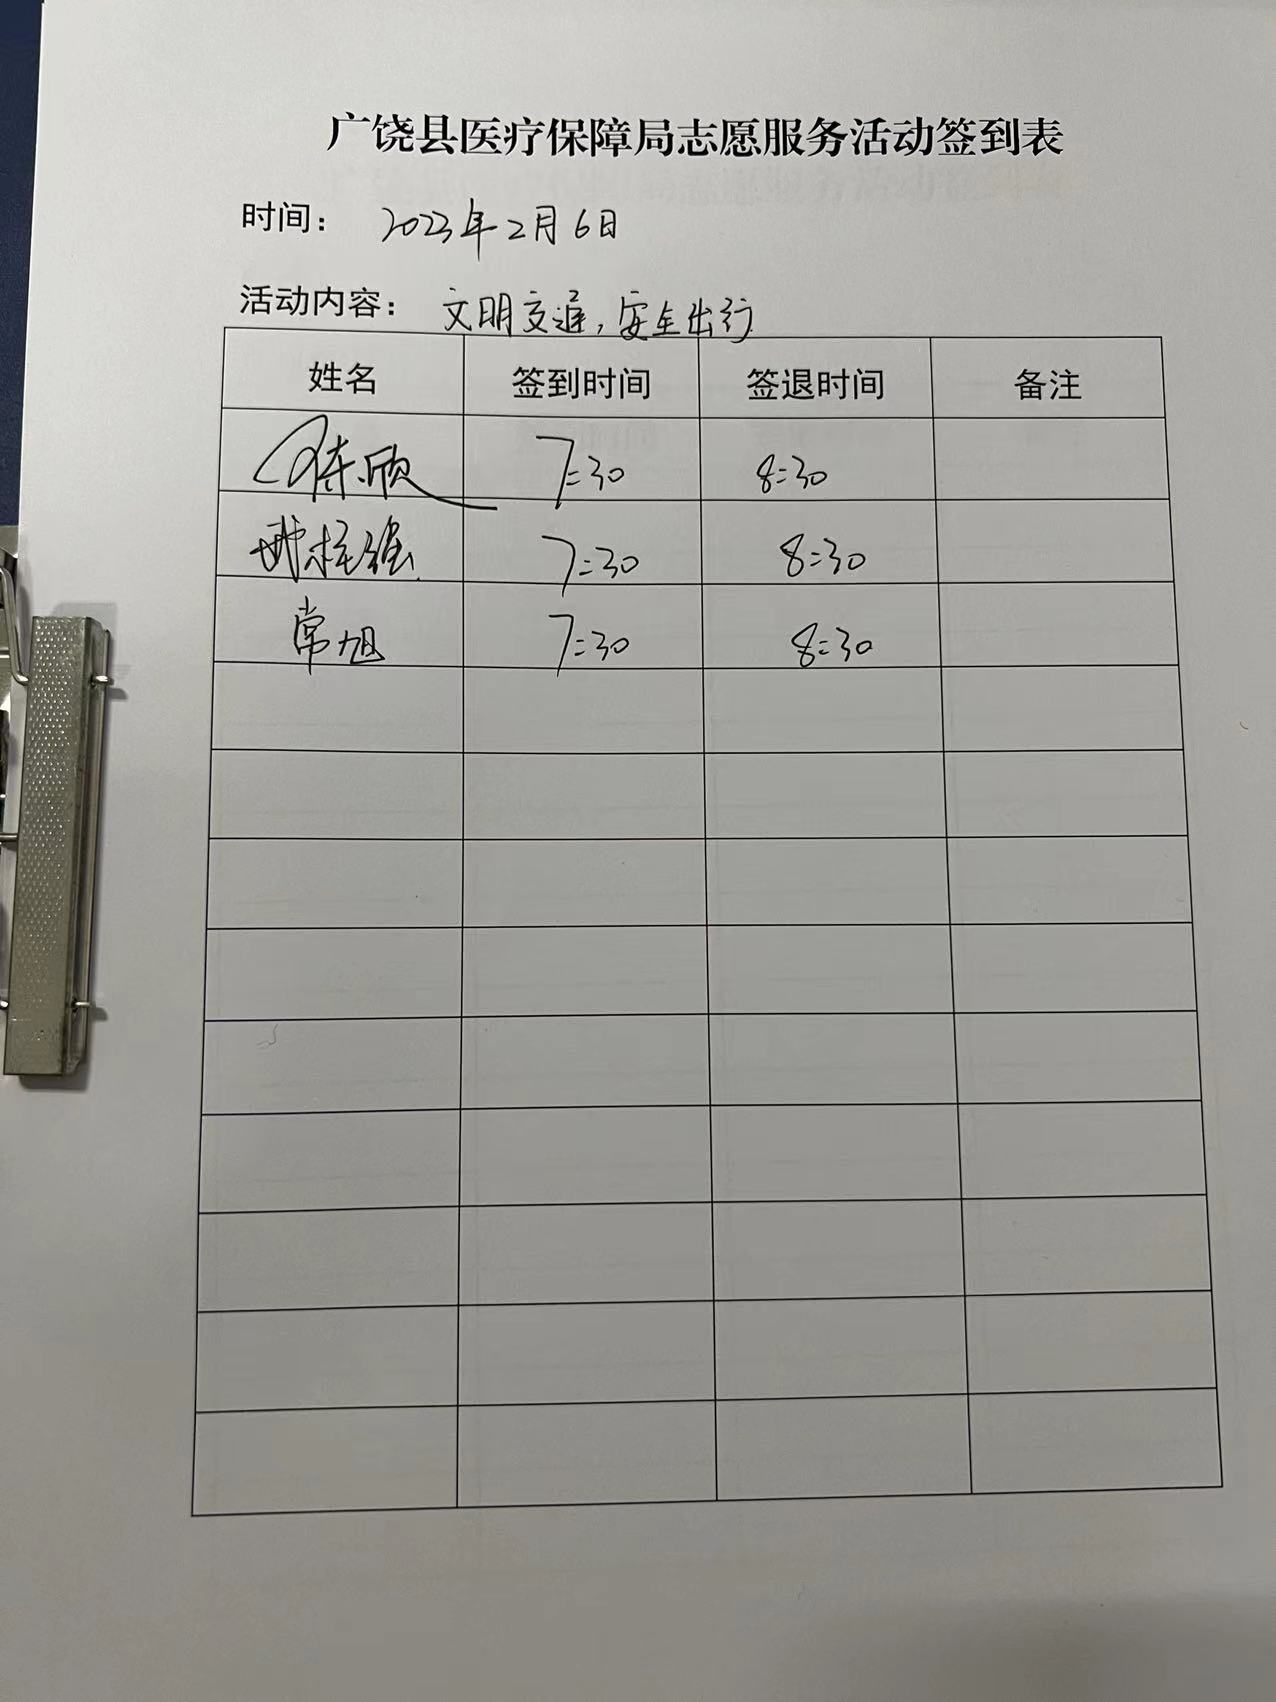 广饶县医疗保障局志愿服务活动签到表
时间： 2023年2月6日
活动内容： 文明交通，安全出行
姓名 签到时间 签退时间 备注
陈欣 7:30 8:30
7:30 8:30
常旭 7:30 8:30